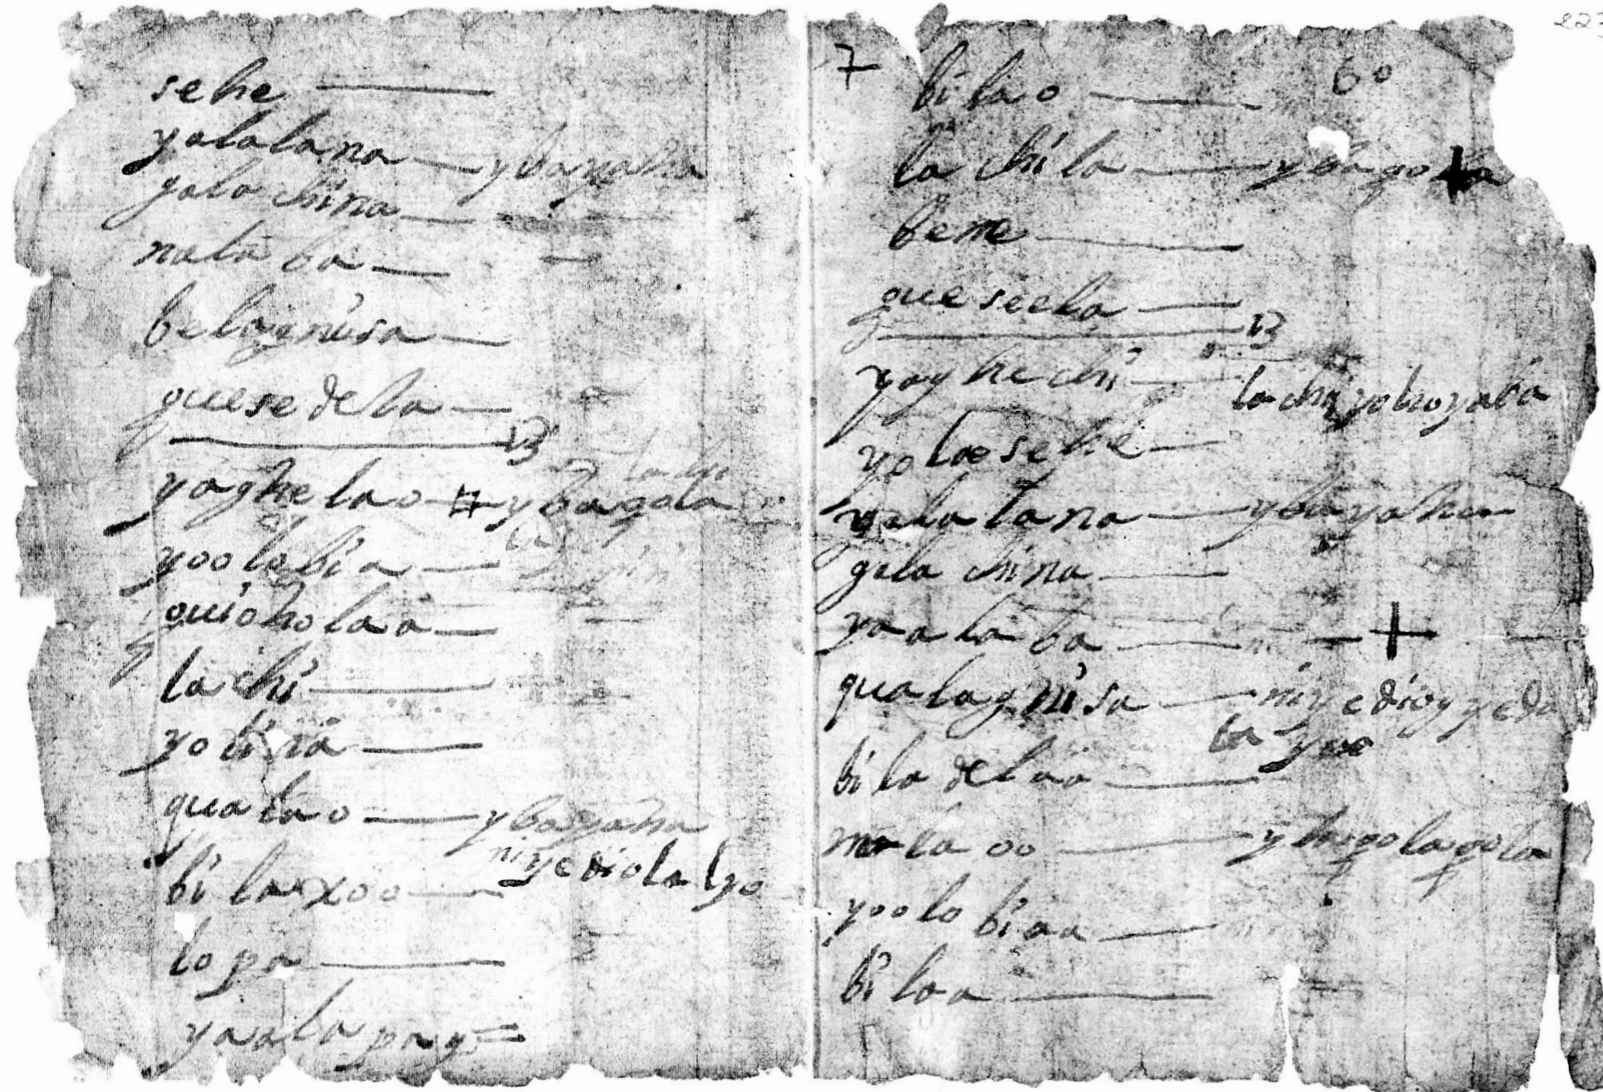 sehe
yalalana — ybayaha
galachina
nalaba
belagnisa
quesedela
13
yaghelao — ybagola
yoolobia
quioholaa
lachi
yolina
qualao — ybayaha
niyediolalyo
bilaxoo
lopa
yaala
223
7 6o
bilao
lachila — ybagola
beme
queseela
13
yayhechi
lachiyohoyaba
yolasehe
yalalana — ybayaha
galachina
yaalaba
qualagnisa — niyedioyyeda
la yoo
biladelaa
malaoo — yhogolagola
yoolobiaa
bilaa